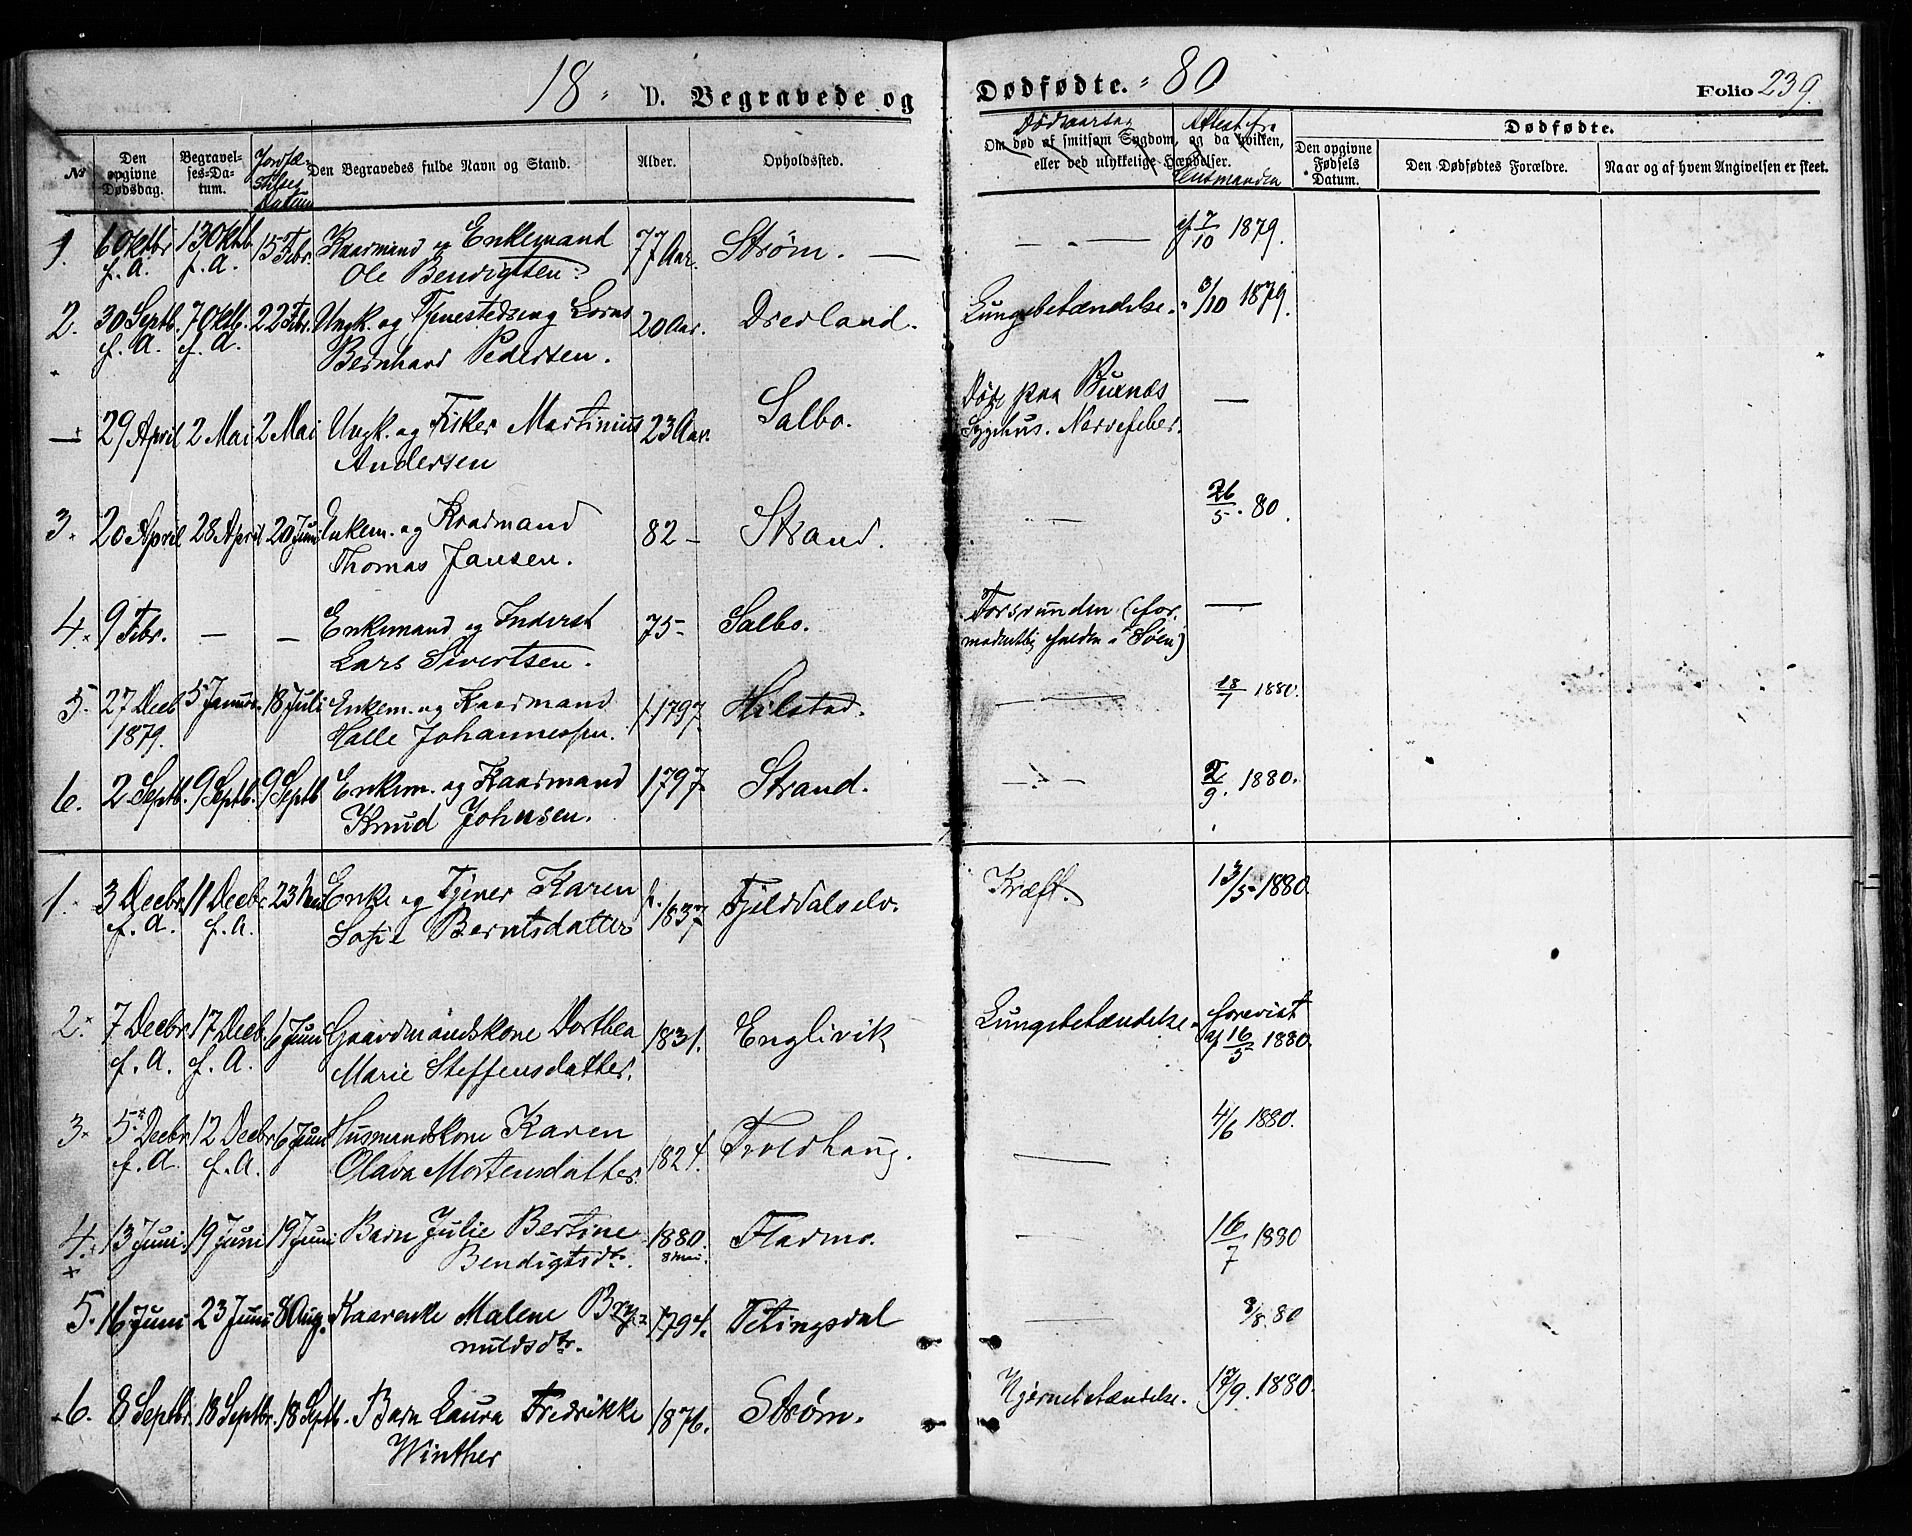 18 - D. Begravede og Dødfødte. - 80 Folio 239.
No | Den opgivne Dødsdag. | Begravelses-Datum. | Jordfæstelses Datum | Den Begravedes fulde Navn og Stand. | Alder. | Opholdssted. | Om død af smitsom Sygdom, og da hvilken, eller ved ulykkelige Hændelser. | Dødsaarsag | Attest fra Lensmanden | Dødfødte. | Den opgivne Fødsels Datum. | Den Dødfødtes Forældre. | Naar og af hvem Angivelsen er skeet.
1. 6 Oktbr 13 Oktb. 15 Febr. Kaarmand og Enkemand 77 Aar. Strøm. — — — 7/10 1879.
f. A. f. A. Ole Bendigtsen.
2. 30 Septb. 7 Oktb. 22 Febr. Ungk. og Tjenestedreng Lorns 20 Aar. Dredland. Lungebetændelse. 3/10 1879.
f. A. f. A. Bernhard Pedersen.
— 29 April 2 Mai 2 Mai Ungk. og Fisker Martinius 23 Aar. Salbo. Døde paa Buxnæs —
Andersen Sygehus. Nervefeber.
3. 20 April 28 April 20 Juni Enkem. og Kaarmand 82 — Strand. — 26/5. 80.
Thomas Jansen.
4. 9 Febr. — — Enkemand og Inderst 75 - Salbo. Forsvunden (for- —
Lars Sivertsen. modentlig falden i Søen)
5. 27 Decb 5 Januar. 18 Juli Enkem. og Kaarmand f. 1797 Hilstad. — 18/7 1880.
1879. Halle Johannessen.
6. 2 Septb. 9 Septb. 9 Septb Enkem. og Kaarmand 1797 Strand. — 2/9. 1880.
Knud Johnsen.
1. 3 Decbr 11 Decbr 23 Mai Enke og Tjener Karen f. 1837 Fjelddalselv. Kræft. 13/5 1880.
f. A. f. A. Sofie Berntsdatter
2. 7 Decbr 17 Decb. 6 Juni Gaardmandskone Dorthea 1831. Englivik Lungebetændelse forevist
f. A. f. A. Marie Steffensdatter. af 16/5 1880.
3. 5 Decbr 12 Decbr 6 Juni Husmandskone Karen 1824. Troldhaug. — 4/6 1880.
f. A. f. A. Olava Mortensdatter
4. 13 Juni. 19 Juni 19 Juni Barn Julie Bertine 1880. Fladmo. — 16/7 1880
Bendigtsdtr. 8 Mai.
5. 16 Juni 23 Juni 8 Aug. Kaarenke Malene Bry- 1794. Tetingsdal — 3/8. 80
nuldsdtr.
6. 8 Septbr 18 Septbr. 18 Septb. Barn Laura Fredrikke 1876. Strøm. Hjernebetændelse. 17/9. 1880.
Winther